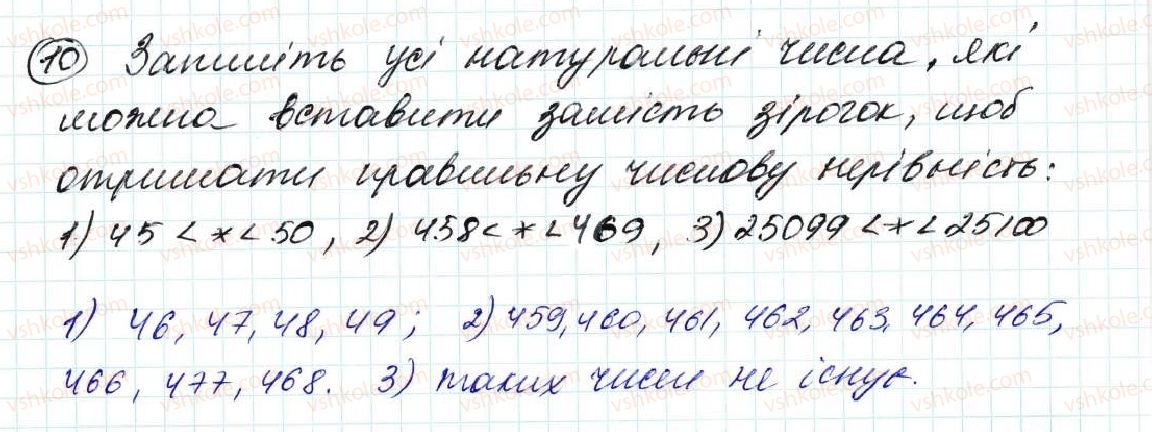 10 Запишіть усі натуральні числа, які
можна вставити замість зірочок, щоб
отримати правильну числову нерівність:
1) 45 < * < 50, 2) 458 < * < 469, 3) 25099 < * < 25100
1) 46, 47, 48, 49; 2) 459, 460, 461, 462, 463, 464, 465,
466, 477, 468. 3) таких чисел не існує.